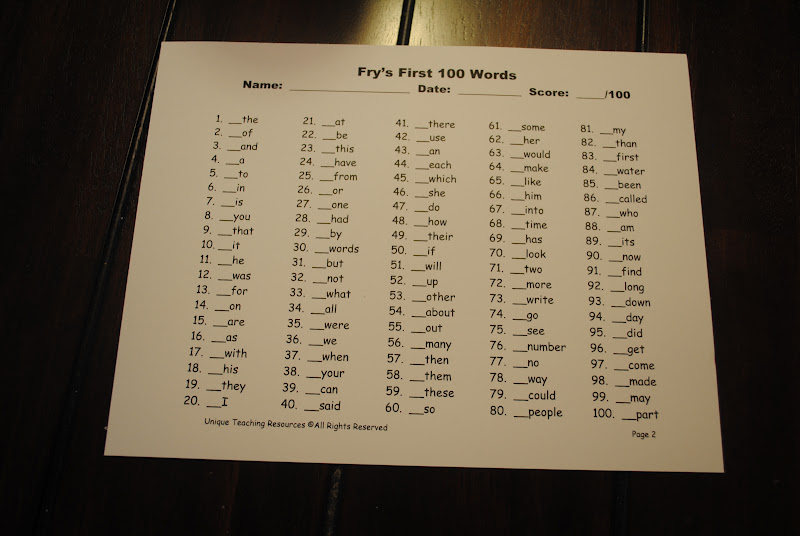 Fry's First 100 Words
Name: ____________________ Date: ___________ Score: _____/100
1. __the
2. __of
3. __and
4. __a
5. __to
6. __in
7. __is
8. __you
9. __that
10. __it
11. __he
12. __was
13. __for
14. __on
15. __are
16. __as
17. __with
18. __his
19. __they
20. __I
21. __at
22. __be
23. __this
24. __have
25. __from
26. __or
27. __one
28. __had
29. __by
30. __words
31. __but
32. __not
33. __what
34. __all
35. __were
36. __we
37. __when
38. __your
39. __can
40. __said
41. __there
42. __use
43. __an
44. __each
45. __which
46. __she
47. __do
48. __how
49. __their
50. __if
51. __will
52. __up
53. __other
54. __about
55. __out
56. __many
57. __then
58. __them
59. __these
60. __so
61. __some
62. __her
63. __would
64. __make
65. __like
66. __him
67. __into
68. __time
69. __has
70. __look
71. __two
72. __more
73. __write
74. __go
75. __see
76. __number
77. __no
78. __way
79. __could
80. __people
81. __my
82. __than
83. __first
84. __water
85. __been
86. __called
87. __who
88. __am
89. __its
90. __now
91. __find
92. __long
93. __down
94. __day
95. __did
96. __get
97. __come
98. __made
99. __may
100. __part
Unique Teaching Resources ©All Rights Reserved
Page 2